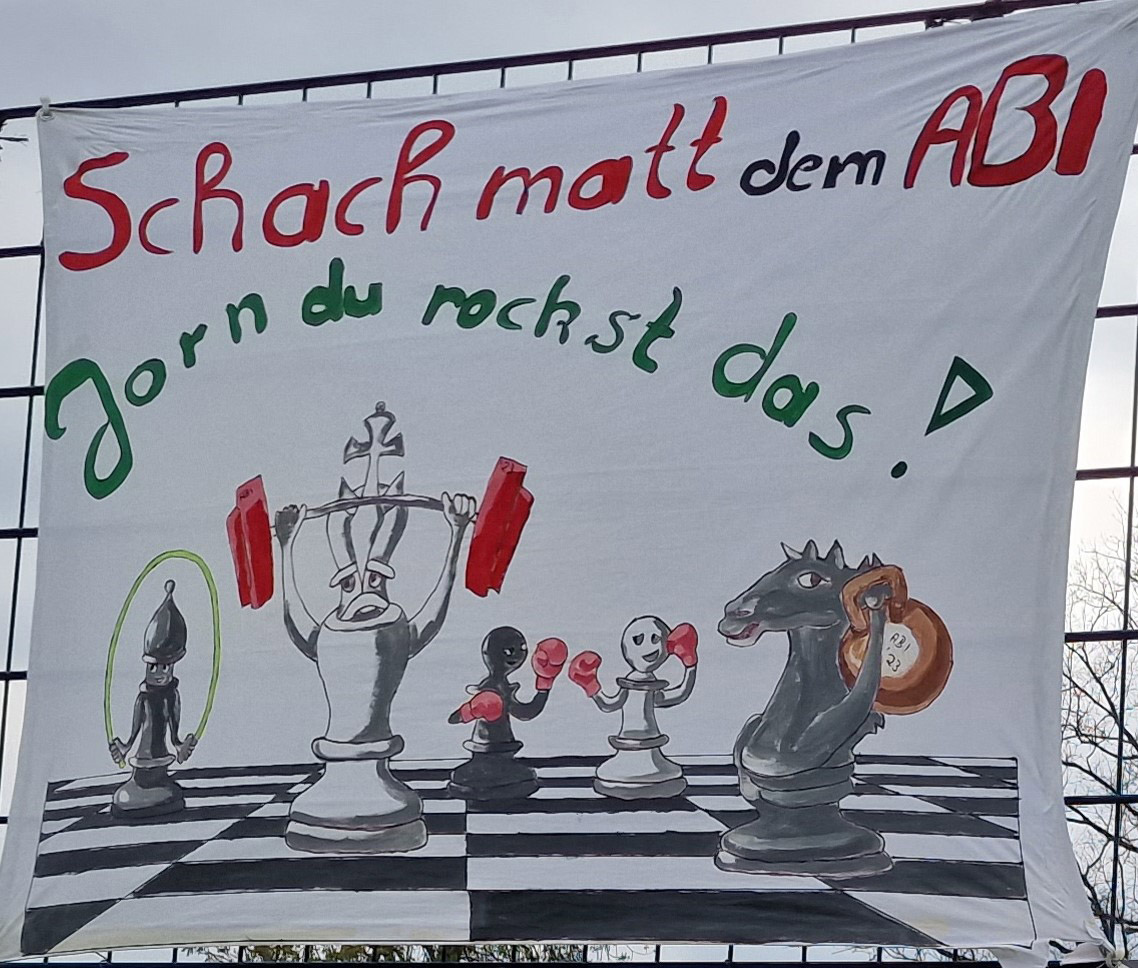 Schach matt dem ABI
Jorn du rockst das!
ABI
23
ABI
23